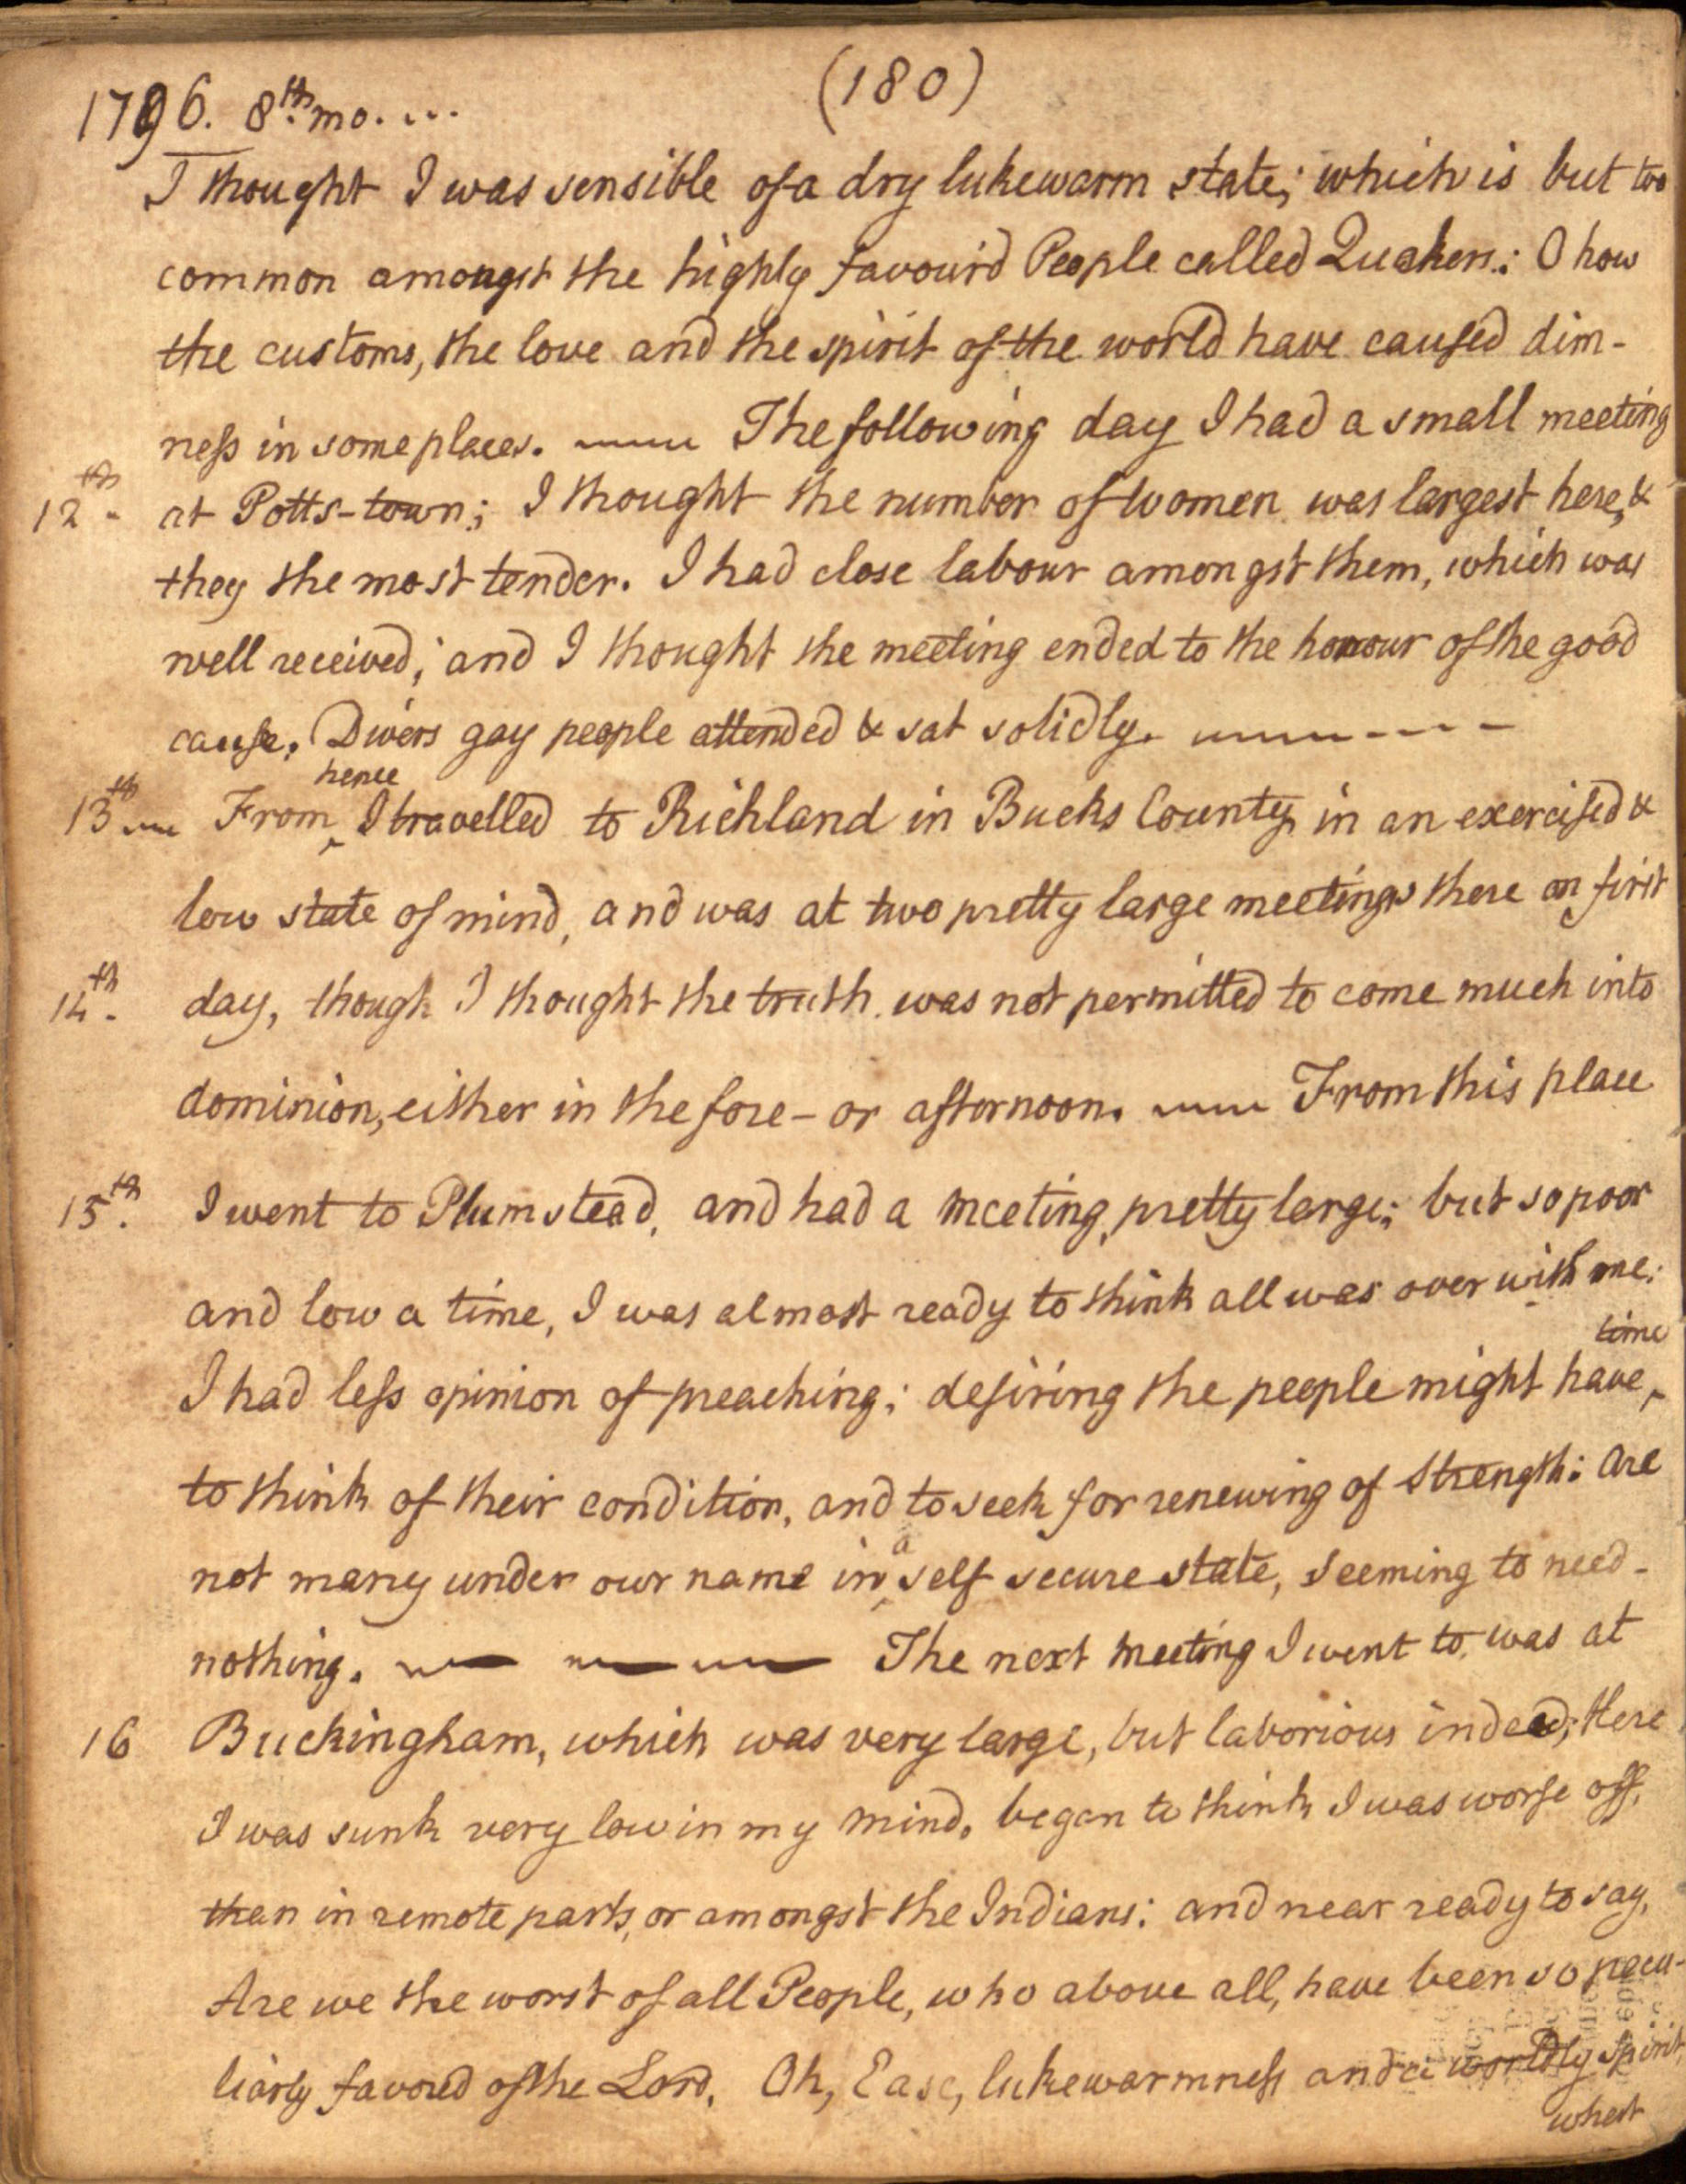 (180)
1796. 8th mo. ...
I thought I was sensible of a dry lukewarm state; which is but too
common amongst the highly favour'd People called Quakers: O how
the customs, the love and the spirit of the world have caused dim-
ness in some places. The following day I had a small meeting
12th. at Potts-town; I thought the number of women was largest here, &
they the most tender. I had close labour amongst them, which was
well received; and I thought the meeting ended to the honour of the good
cause. Divers gay people attended & sat solidly.
hence
13th From ^ I travelled to Richland in Bucks County in an exercised &
low state of mind, and was at two pretty large meetings there on first
14th. day, though I thought the truth was not permitted to come much into
dominion, either in the fore- or afternoon. From this place
15th. I went to Plumstead, and had a meeting, pretty large; but so poor
and low a time, I was almost ready to think all was over with me;
time
I had less opinion of preaching; desiring the people might have ^
to think of their condition, and to seek for renewing of strength: are
a
not many under our name in ^ self secure state, seeming to need-
nothing. The next meeting I went to was at
16 Buckingham, which was very large, but laborious indeed; Here
I was sunk very low in my mind, began to think I was worse off,
than in remote parts, or amongst the Indians: and near ready to say,
Are we the worst of all People, who above all, have been so pecu-
liarly favored of the Lord. Oh, Ease, lukewarmness and a worldly spirit,
what